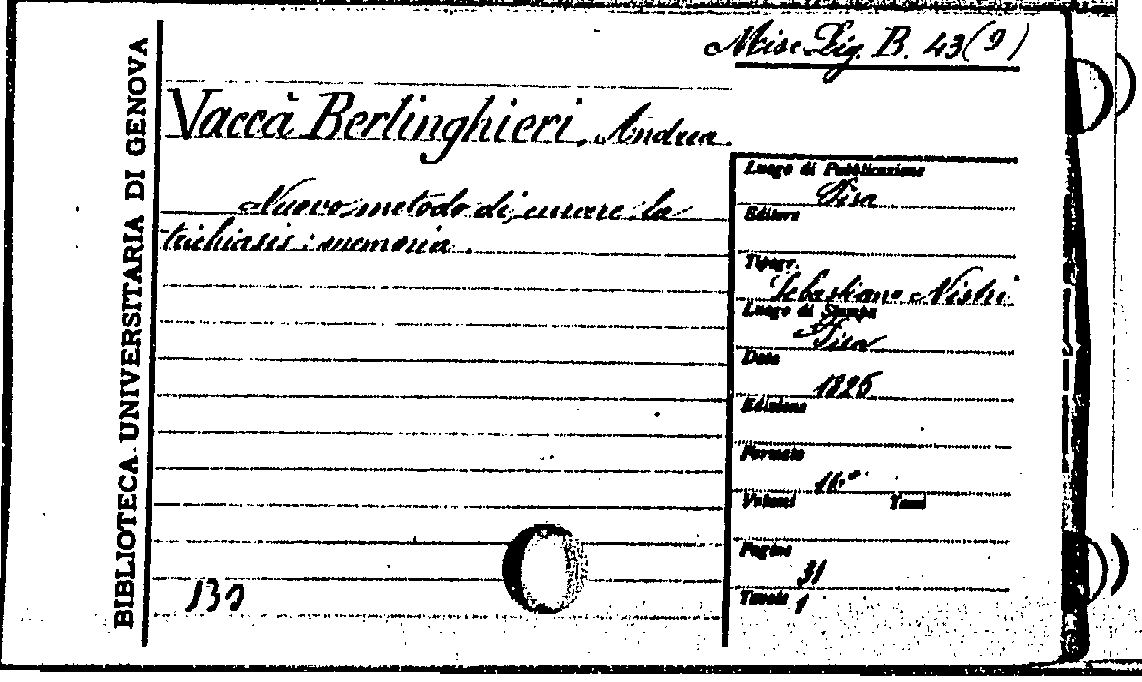 Misc Lig. B. 43(9)
BIBLIOTECA UNIVERSITARIA DI GENOVA
Vaccà Berlinghieri, Andrea.
Nuovo metodo di curare la
trichiasis: memoria.
Luogo di Pubblicazione
Pisa
Editore
Tipogr.
Sebastiano Nistri
Luogo di Stampa
Pisa
Data
1825
Edizione
Formato
16°
Volumi Tomi
Pagine
31
Tavole 1
130